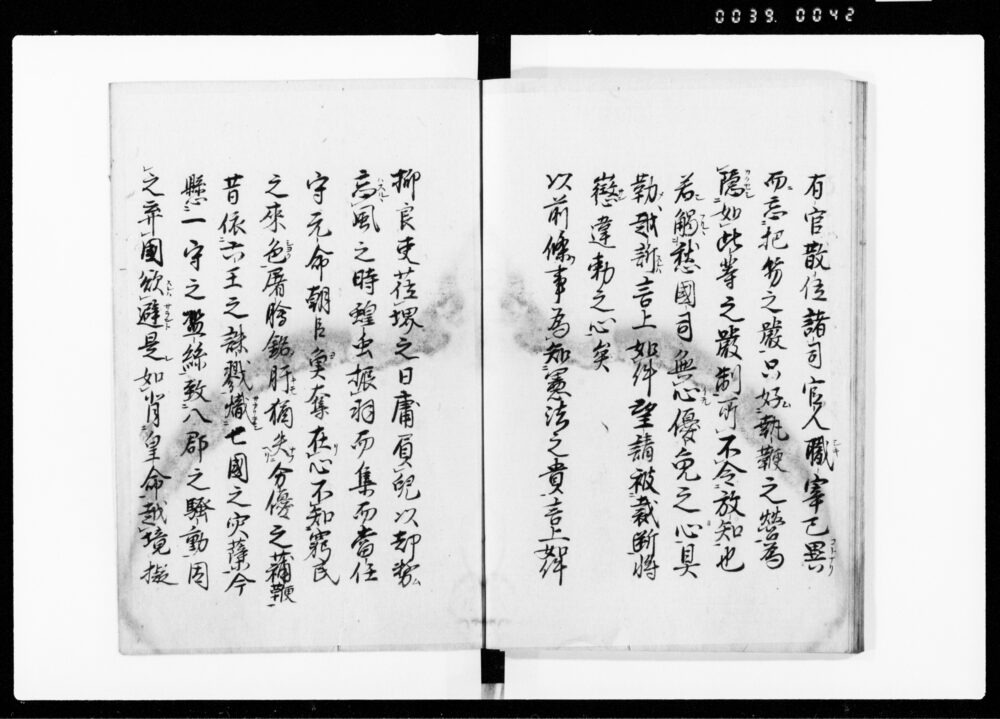 0039 0042
有官散位諸司官人職宰已異
而忘把笏之嚴只好執鞭之營為
隱如此等之嚴制所不令放知也
若觸愁國司無心優免之心具
勒越新言上如件望請被裁断將
懲違勅之心矣
以前條事為知憲法之貴言上如件
抑良吏莅堺之日庸員皃以却
高風之時蝗虫振羽而集而當任
守元命朝臣奠奪在心不知窮民
之來色屠膾銘肝猶失分優之蒱鞭
昔依六王之誅戮熾七國之灾蘖今
懸一守之濫絲致八郡之騷動因
之弃國欲避是如肖皇命越境擬